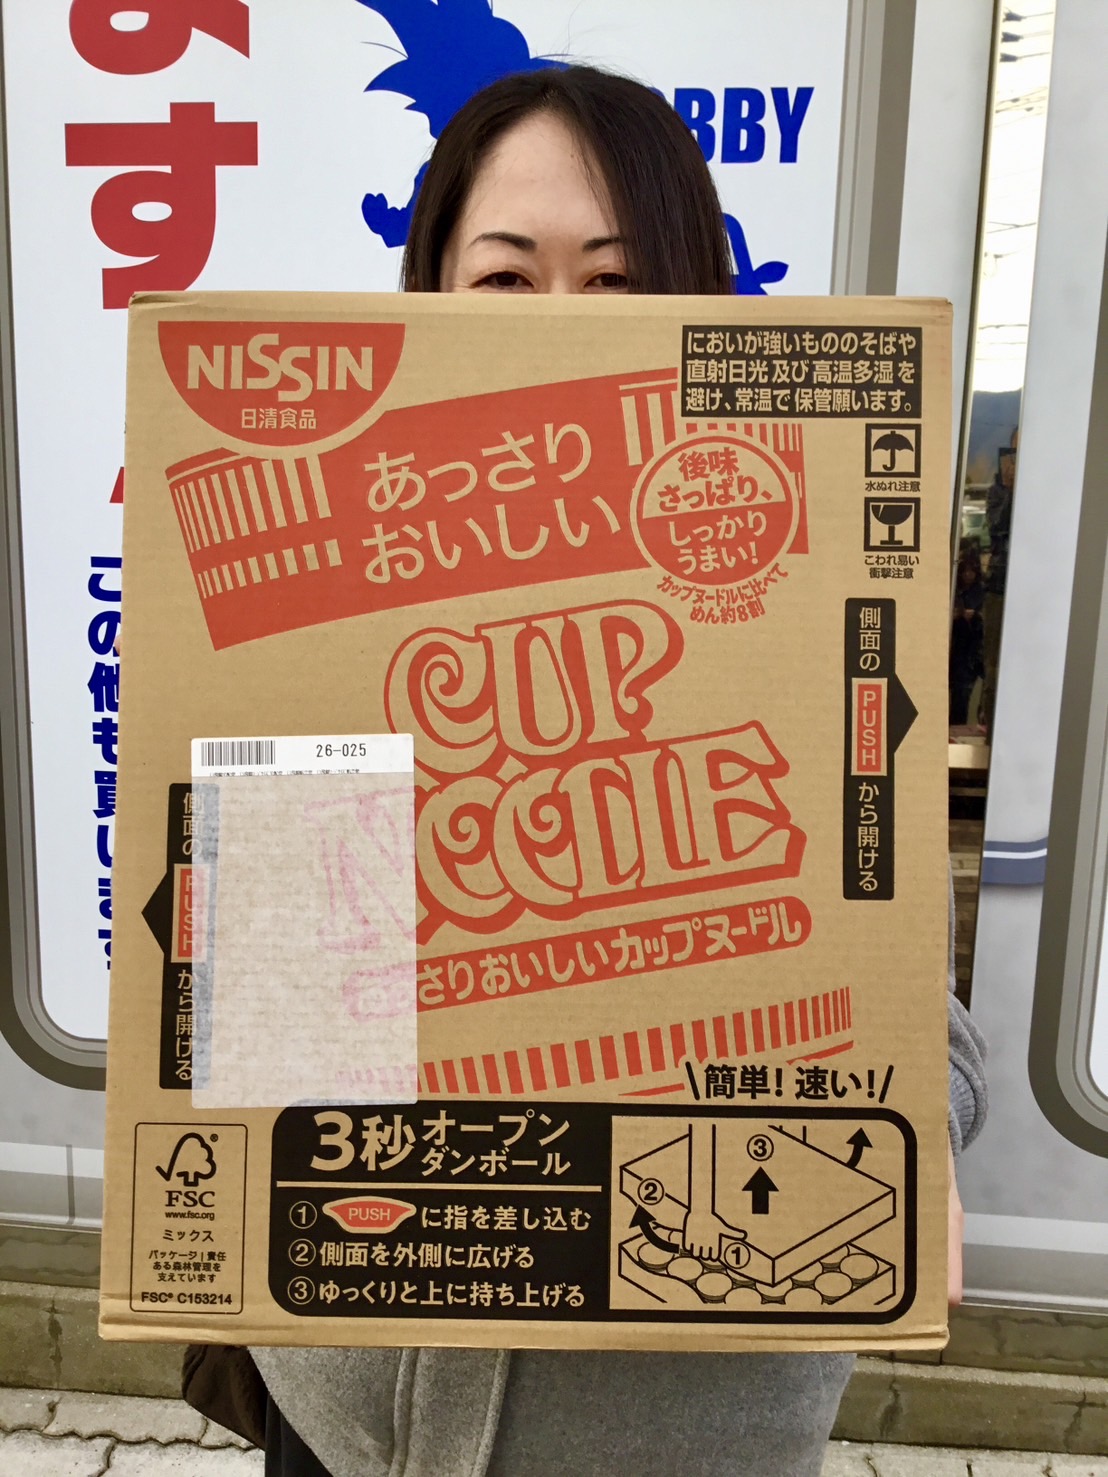 ます
BBY
この他も買います
NISSIN
日清食品
においが強いもののそばや
直射日光及び高温多湿を
避け、常温で保管願います。
水ぬれ注意
こわれ易い
衝撃注意
あっさり
おいしい
後味
さっぱり、
しっかり
うまい!
カップヌードルに比べて
めん約8割
CUP
NOODLE
さりおいしいカップヌードル
側面の PUSH から開ける
26-025
側面の PUSH から開ける
\簡単! 速い!/
3秒オープン
ダンボール
① PUSH に指を差し込む
② 側面を外側に広げる
③ ゆっくりと上に持ち上げる
③
②
①
FSC
www.fsc.org
ミックス
パッケージ|責任
ある森林管理を
支えています
FSC® C153214